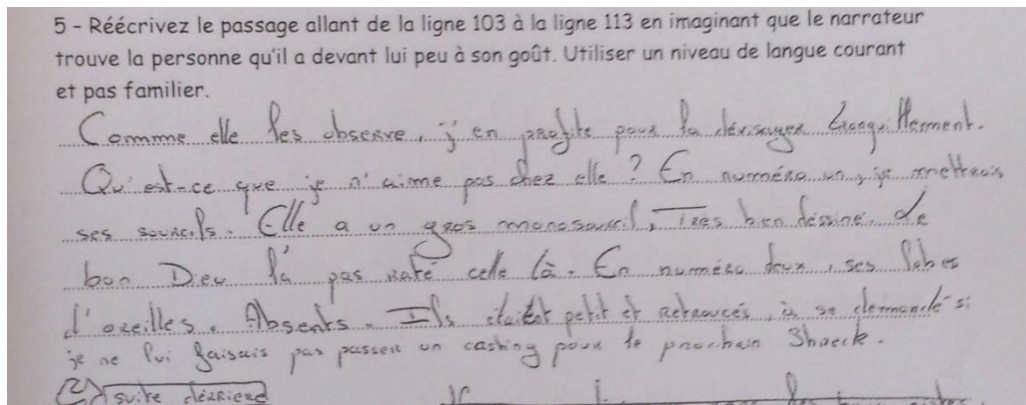 5 - Réécrivez le passage allant de la ligne 103 à la ligne 113 en imaginant que le narrateur
trouve la personne qu'il a devant lui peu à son goût. Utiliser un niveau de langue courant
et pas familier.
Comme elle les observe, j'en profite pour la dévisager tranquillement.
Qu'est-ce que je n'aime pas chez elle ? En numéro un, je mettrais
ses sourcils. Elle a un gros monosourcil, Très bien dessiné, le
bon Dieu l'a pas raté celle là. En numéro deux, ses lobes
d'oreilles. Absents. Ils étaient petit et retroucés, à se demandé si
je ne lui faisais pas passer un casting pour le prochain Shreck.
suite derriere